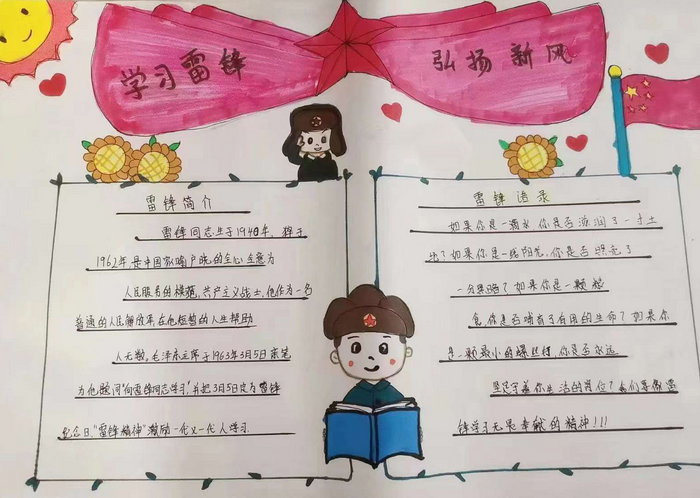 学习雷锋
弘扬新风
雷锋简介
雷锋同志生于1940年,猝于
1962年,是中国家喻户晓的全心全意为
人民服务的模范,共产主义战士,他作为一名
普通的人民解放军,在他短暂的人生帮助
人无数,毛泽东主席于1963年3月5日亲笔
为他题词"向雷锋同志学习"并把3月5日定为雷锋
纪念日."雷锋精神"激励一代又一代人学习.
雷锋语录
如果你是一滴水,你是否滋润了一寸土
地?如果你是一线阳光,你是否照亮了
一分黑暗?如果你是一颗粮
食,你是否哺育了有用的生命?如果你
是一颗最小的螺丝钉,你是否永远
坚守着你生活的岗位?我们要像雷
锋学习无累奉献的精神!!!